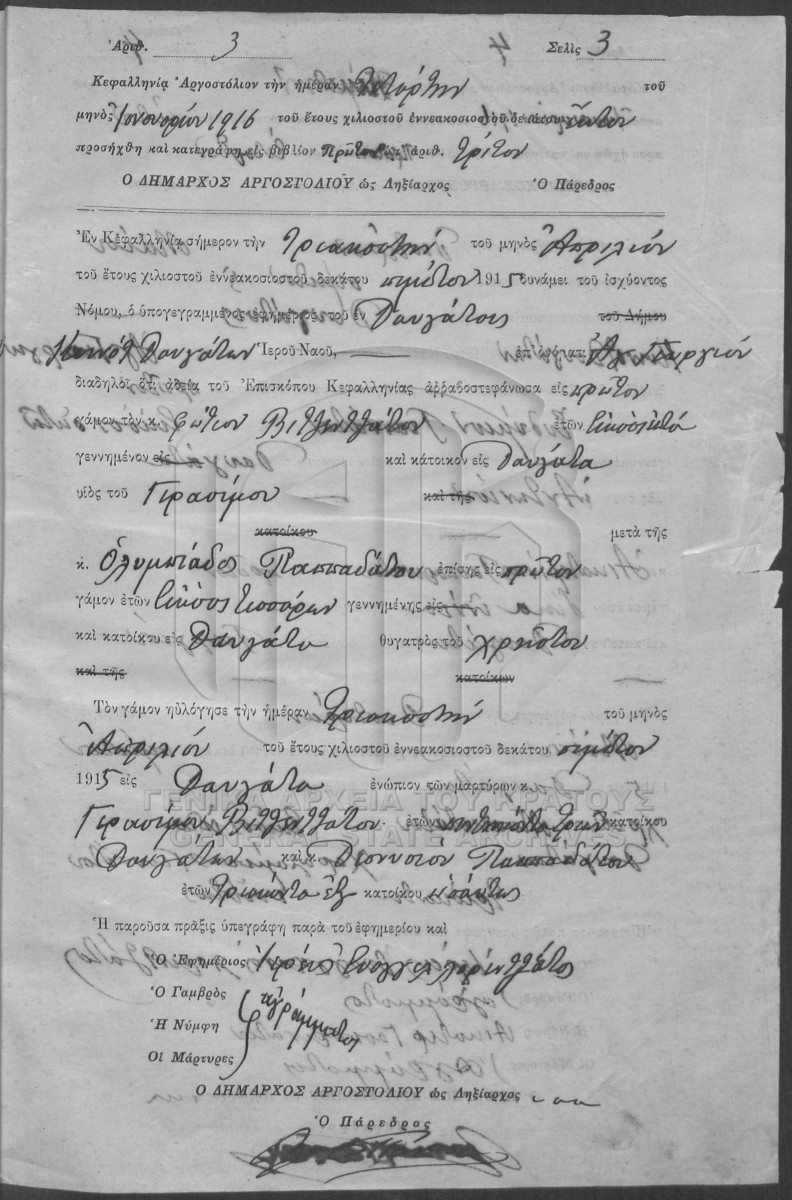 Ἀριθ. 3 Σελὶς 3
Κεφαλληνία Ἀργοστόλιον τὴν ἡμέραν Τετάρτην τοῦ
μηνὸς Ἰανουαρίου 1916 τοῦ ἔτους χιλιοστοῦ ἐννεακοσιοστοῦ δεκάτου ἕκτου
προσήχθη καὶ κατεγράφη εἰς βιβλίον Πρῶτον ἀριθ. τρίτον
Ο ΔΗΜΑΡΧΟΣ ΑΡΓΟΣΤΟΛΙΟΥ ὡς Ληξίαρχος Ὁ Πάρεδρος
Ἐν Κεφαλληνίᾳ σήμερον τὴν τριακοστὴν τοῦ μηνὸς Ἀπριλίου
τοῦ ἔτους χιλιοστοῦ ἐννεακοσιοστοῦ δεκάτου πέμπτου 1915 δυνάμει τοῦ ἰσχύοντος
Νόμου, ὁ ὑπογεγραμμένος ἐφημέριος τοῦ ἐν Δαυγάτοις τοῦ Δήμου
Κοινότ Δαυγάτων Ἱεροῦ Ναοῦ, ἐπ' ὀνόματι Ἁγ. Γεωργίου
διαδηλοῖ ὅτι ἀδείᾳ τοῦ Ἐπισκόπου Κεφαλληνίας ἀρραβοστεφάνωσα εἰς πρῶτον
γάμον τὸν κ. Φώτιον Βιτζεντζάτον ἐτῶν εἰκοσιεπτὰ
γεννημένον εἰς καὶ κάτοικον εἰς Δαυγάτα
υἱὸς τοῦ Γερασίμου καὶ τῆς
κατοίκου μετὰ τῆς
κ. Ὀλυμπιάδος Παππαδάτου ἐπίσης εἰς πρῶτον
γάμον ἐτῶν εἴκοσι τεσσάρων γεννημένης εἰς
καὶ κατοίκου εἰς Δαυγάτα θυγατρὸς τοῦ Χρήστου
καὶ τῆς κατοίκων
Τὸν γάμον ηὐλόγησε τὴν ἡμέραν τριακοστὴν τοῦ μηνὸς
Ἀπριλίου τοῦ ἔτους χιλιοστοῦ ἐννεακοσιοστοῦ δεκάτου πέμπτου
1915 εἰς Δαυγάτα ἐνώπιον τῶν μαρτύρων κ.
ΓΕΝΙΚΑ ΑΡΧΕΙΑ ΤΟΥ ΚΡΑΤΟΥΣ
Γερασίμου Βιτζεντζάτου ἐτῶν πεντήκοντα τριῶν κατοίκου
GENERAL STATE ARCHIVES
Δαυγάτων καὶ κ. Διονυσίου Παππαδάτου
ἐτῶν τριάκοντα ἓξ κατοίκου ὡσαύτως
Ἡ παροῦσα πρᾶξις ὑπεγράφη παρὰ τοῦ ἐφημερίου καὶ
Ὁ Ἐφημέριος
Ὁ Γαμβρὸς ἀγράμματοι
Ἡ Νύμφη
Οἱ Μάρτυρες
Ο ΔΗΜΑΡΧΟΣ ΑΡΓΟΣΤΟΛΙΟΥ ὡς Ληξίαρχος
Ὁ Πάρεδρος